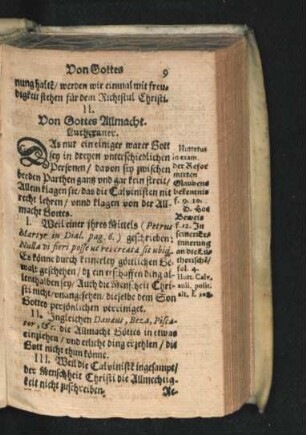 Von Gottes
9
nung halte/ werden wir einmal mit freu-
digkeit stehen für dem Richtstul Christi.
II.
Von Gottes Allmacht.
Lutheraner.
DAs nur ein einiger warer Gott
sey in dreyen unterschiedlichen
Personen/ davon sey zwischen
beyden Parthen gantz und gar kein streit/
Allein klagen sie/ das die Calvinisten nit
recht lehren/ vnnd klagen von der All-
macht Gottes.
I. Weil einer jhres Mittels (Petrus
Martyr in Dial. pag. 6.) geschrieben:
Nulla vi fieri posse ut res creata sit ubiq;
Es könne durch keinerley göttlichen Ge-
walt geschehen/ dz ein erschaffen ding al-
lenthalben sey/ Auch die Menschheit Chri-
sti nicht/ vnangesehen/ dieselbe dem Son
Gottes persönlich vereiniget.
II. Ingleichen Danæus, Beza, Pisca-
tor, &c. die Allmacht Gottes in etwas
einziehen/ und etliche ding erzehlen/ die
Gott nicht thun könne.
III. Weil die Calvinisten ingesampt/
der Menschheit Christi die Allmechtig-
keit nicht zuschreiben.
Re-
Hutterus
in exam.
der Refor
mirten
Glaubens
bekentnis
f. 9. 10.
D. Hoe
Beweis
f. 12. In
seiner Er-
innerung
an die Lu-
therische/
fol. 4.
Hutt. Calv.
auli. polit.